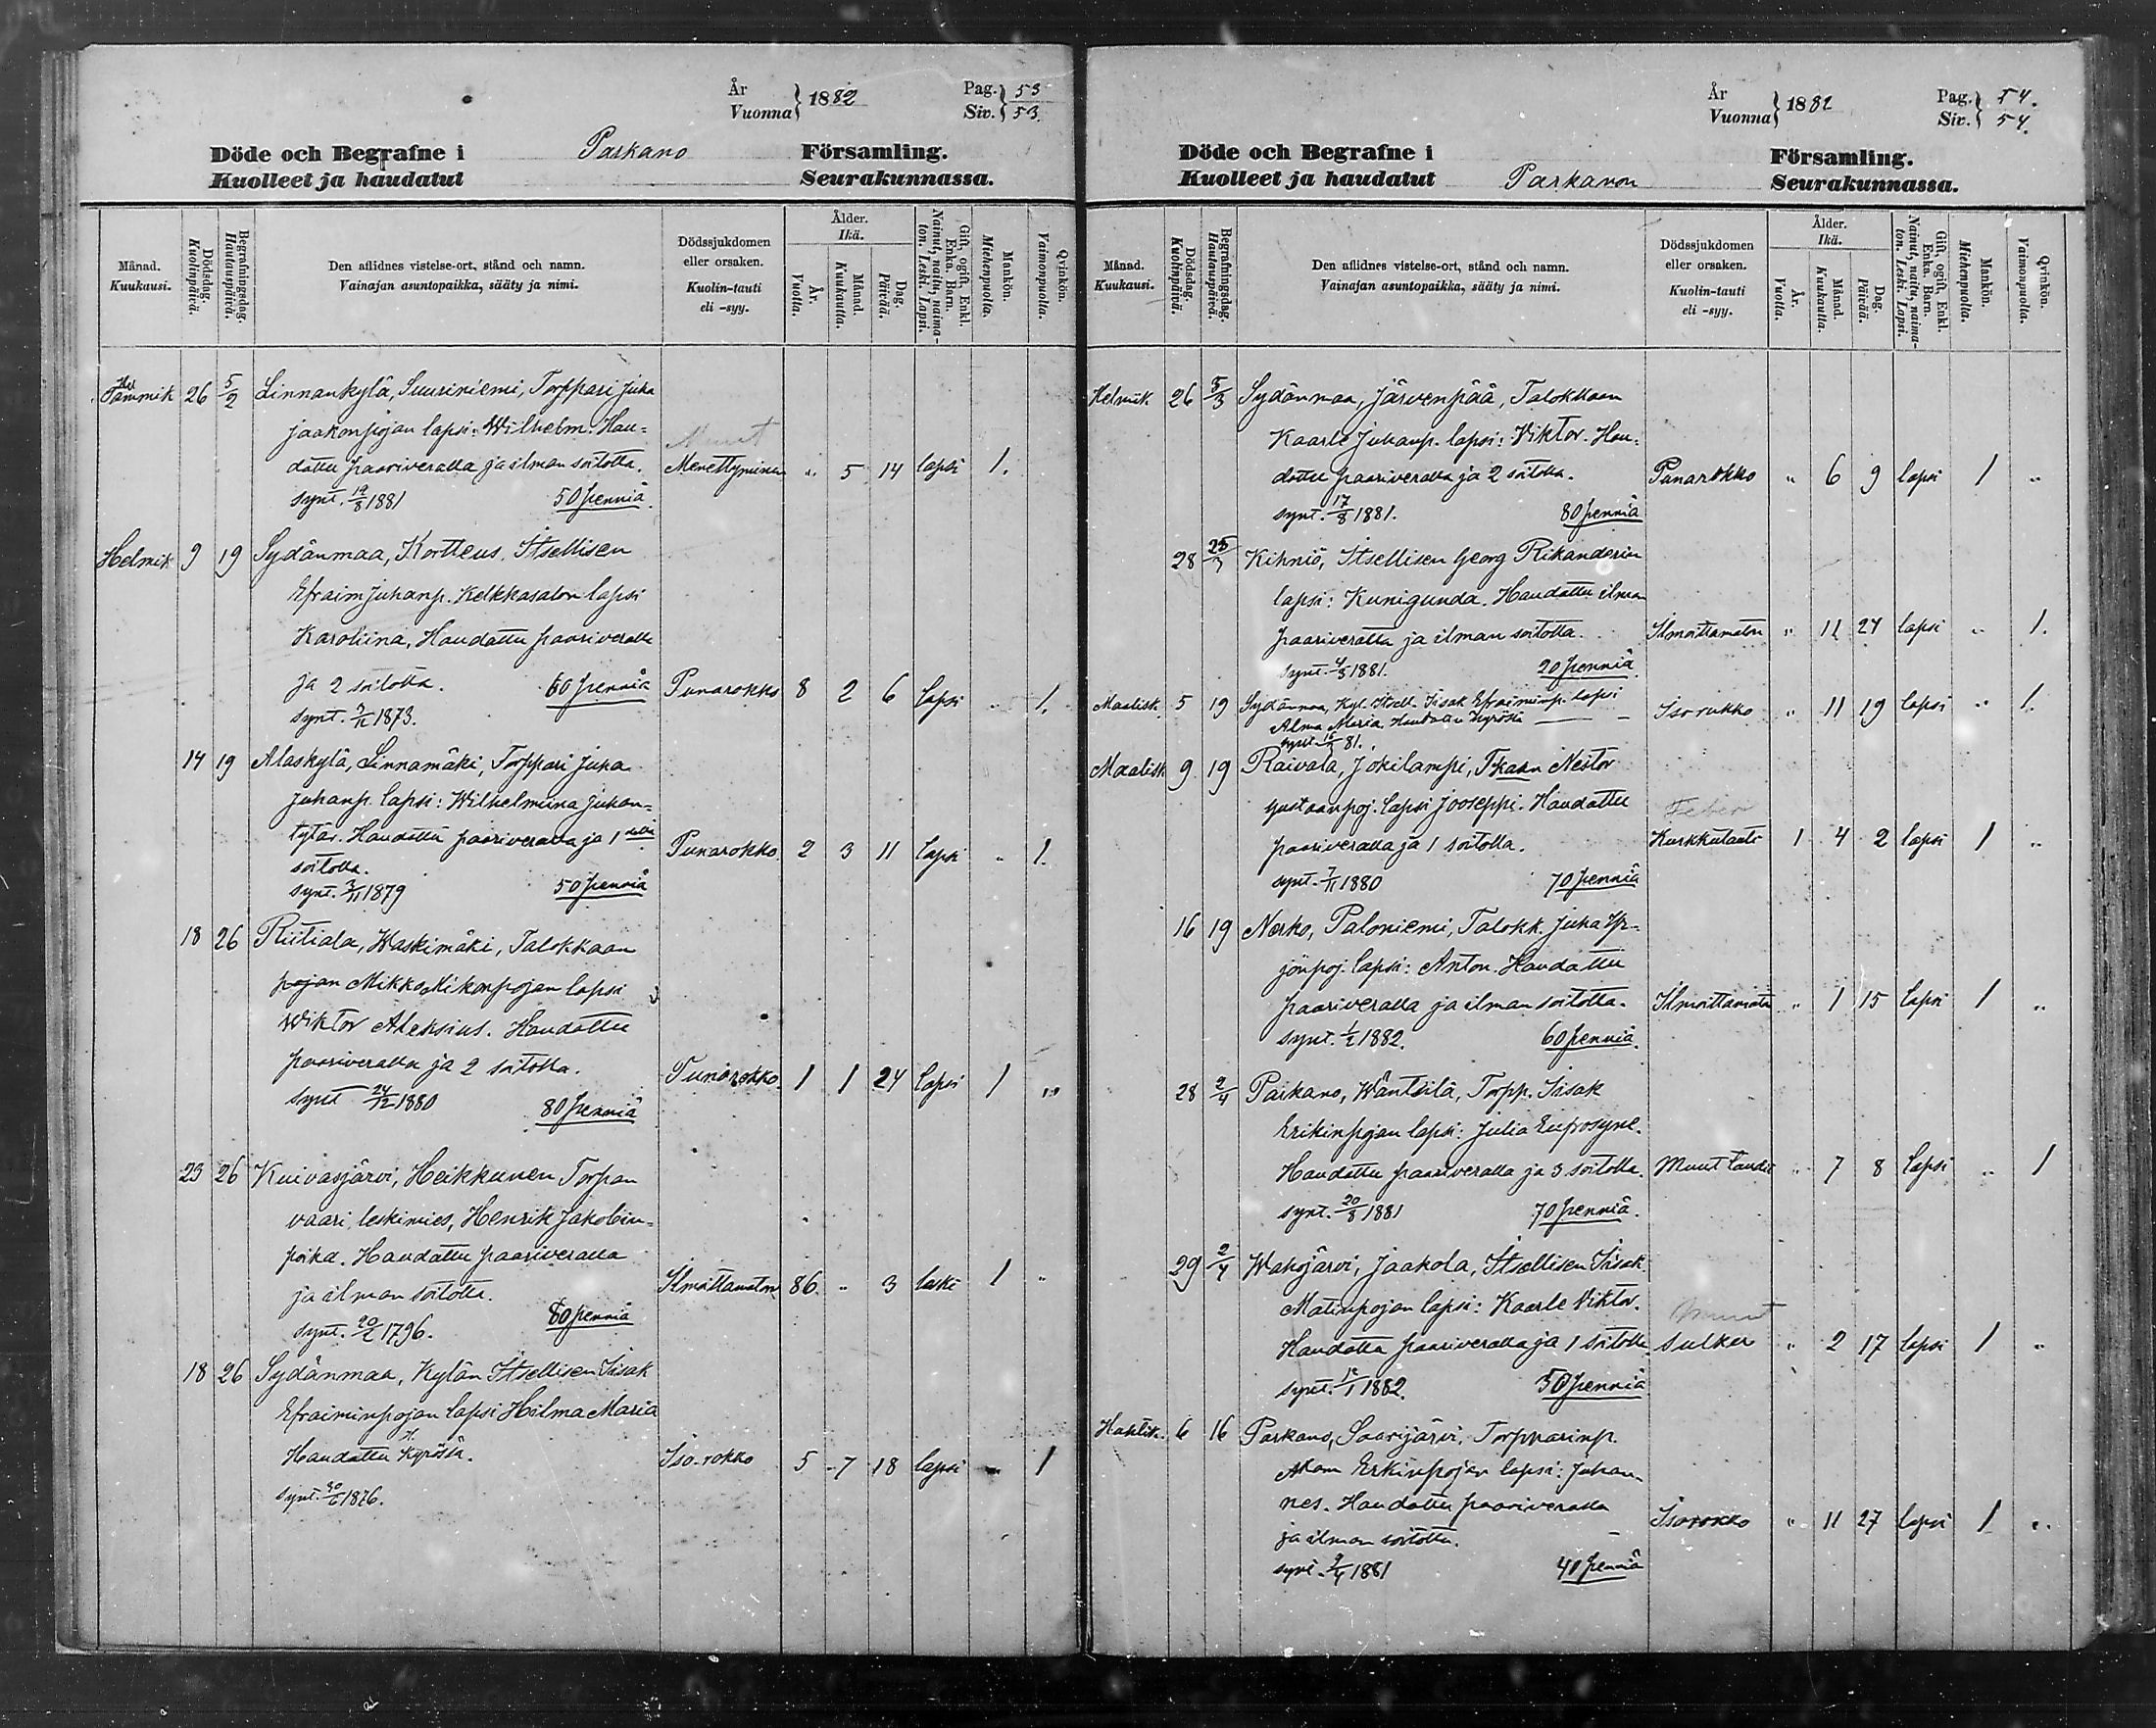 År
Vuonna } 1882
Pag. 53
Siv. 53.
Döde och Begrafne i Parkano Församling.
Kuolleet ja haudatut Seurakunnassa.
Månad.
Kuukausi.
Dödsdag.
Kuolinpäivä.
Begrafningsdag.
Hautauspäivä.
Den aflidnes vistelse-ort, stånd och namn.
Vainajan asuntopaikka, sääty ja nimi.
Dödssjukdomen
eller orsaken.
Kuolin-tauti
eli -syy.
Ålder.
Ikä.
År.
Vuotta.
Månad.
Kuukautta.
Dag.
Päivää.
Gift, ogift, Enkl.
Enka. Barn.
Nainut, naitu, naima-
ton. Leski. Lapsi.
Mankön.
Miehenpuolta.
Qvinkön.
Vaimonpuolta.
Tammik 26 5/2 Linnankylä, Suuriniemi, Torppari Juha
Jaakonpojan lapsi: Wilhelm. Hau-
Muut
dattu paariveralla ja ilman soitotta. Menettyminen " 5 14 lapsi 1.
synt. 12/8 1881 50 penniä.
Helmik 9 19 Sydänmaa, Kortteus, Itsellisen
Efraim Juhanp. Kelkkasalon lapsi
Karoliina, Haudattu paariveralla
ja 2 soitolla. 60 penniä Punarokko 8 2 6 lapsi " 1.
synt. 3/12 1873.
14 19 Alaskylä, Linnamäki, Torppari Juha
Juhanp. lapsi: Wilhelmiina Juhan-
tytär. Haudattu paariveralla ja 1 della Punarokko 2 3 11 lapsi " 1.
soitolla.
synt. 3/11 1879 50 penniä
18 26 Riitiala, Waskimäki, Talokkaan
pojan Mikko Mikonpojan lapsi
Wiktor Aleksius. Haudattu
paariveralla ja 2 soitolla. Punarokko 1 1 24 lapsi 1 "
synt 24/12 1880 80 penniä
23 26 Kuivasjärvi, Heikkunen Torpan
vaari, leskimies, Henrik Jakobin-
poika. Haudattu paariveralla
ja ilman soitotta. Ilmoittamaton 86 " 3 leski 1 "
synt. 20/2 1796. 80 penniä
18 26 Sydänmaa, Kylän Itsellisen Iisak
Efraiminpojan lapsi Hilma Maria
Haudattu H. Kyrössä. Iso-rokko 5 7 18 lapsi " 1
synt. 30/6 1876.
År
Vuonna } 1882
Pag. 54.
Siv. 54.
Döde och Begrafne i Församling.
Kuolleet ja haudatut Parkanon Seurakunnassa.
Månad.
Kuukausi.
Dödsdag.
Kuolinpäivä.
Begrafningsdag.
Hautauspäivä.
Den aflidnes vistelse-ort, stånd och namn.
Vainajan asuntopaikka, sääty ja nimi.
Dödssjukdomen
eller orsaken.
Kuolin-tauti
eli -syy.
Ålder.
Ikä.
År.
Vuotta.
Månad.
Kuukautta.
Dag.
Päivää.
Gift, ogift, Enkl.
Enka. Barn.
Nainut, naitu, naima-
ton. Leski. Lapsi.
Mankön.
Miehenpuolta.
Qvinkön.
Vaimonpuolta.
Helmik 26 5/3 Sydänmaa, Järvenpää, Talokkaan
Kaarle Juhanp. lapsi: Viktor. Hau-
dattu paariveralla ja 2 soitolla. Punarokko " 6 9 lapsi 1 "
synt. 17/8 1881. 80 penniä
28 Kihniö, Itsellisen Georg Rikanderin
lapsi: Kunigunda. Haudattu ilman
paariveratta ja ilman soitotta. Ilmoittamaton " 11 24 lapsi " 1.
synt. 4/3 1881. 20 penniä
Maalisk. 5 19 Sydänmaa, Kyl. Itsell. Iisak Efraiminp. lapsi
Alma Maria. Haudattu Kyrössä Isorokko " 11 19 lapsi " 1.
synt. 81.
Maalisk 9 19 Raivala, Jokilampi, Tkaan Nestor
Gustaanpoj. lapsi Jooseppi. Haudattu
Feber
paariveralla ja 1 soitolla. Kurkkutauti 1 4 2 lapsi 1 "
synt. 7/11 1880 70 penniä
16 19 Nerko, Paloniemi, Talokk. Juha Yr-
jönpoj. lapsi: Anton. Haudattu
paariveralla ja ilman soitotta. Ilmoittamaton " 1 15 lapsi 1 "
synt. 1/2 1882. 60 penniä.
28 2/4 Parkano, Wäntsilä, Torpp. Iisak
Erikinpojan lapsi: Julia Eufrosyne.
Haudattu paariveralla ja 3 soitolla. Muut taudit " 7 8 lapsi " 1
synt. 20/8 1881 70 penniä.
29 2/4 Wahojärvi, Jaakola, Itsellisen Iisak
Matinpojan lapsi: Kaarle Viktor.
Muut
Haudattu paariveralla ja 1 soitolla sulku " 2 17 lapsi 1 "
synt. 12/1 1882. 50 penniä
Huhtik. 6 16 Parkano, Saarijärvi, Torpparinp.
Akam Erkinpojan lapsi: Juhan-
nes. Haudattu paariveralla Isorokko " 11 27 lapsi 1 "
ja ilman soitotta.
synt. 9/4 1881 40 penniä